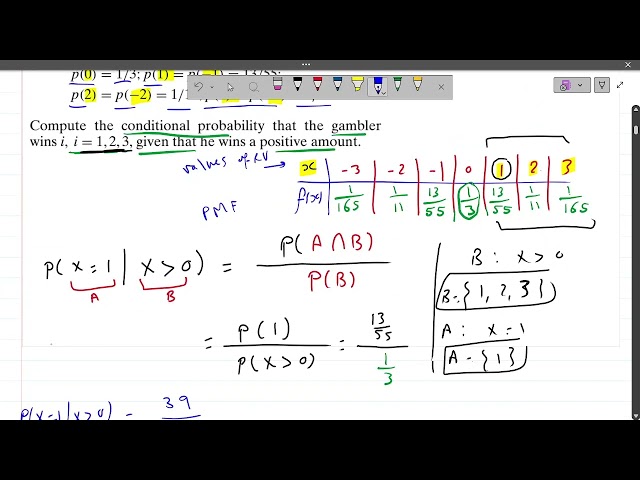 p(0) = 1/3; p(1) = p(−1) = 13/55;
p(2) = p(−2) = 1/1
Compute the conditional probability that the gambler
wins i, i = 1, 2, 3, given that he wins a positive amount.
values of RV → x | -3 | -2 | -1 | 0 | 1 | 2 | 3
PMF f(x) | 1/165 | 1/11 | 13/55 | 1/3 | 13/55 | 1/11 | 1/165
P(x=1 | x>0) = P(A∩B) / P(B)
A B
= P(1) / P(x>0) = 13/55 / 1/3
B: x>0
B={1, 2, 3}
A: x=1
A-{1}
P(x=1 | x>0) = 39